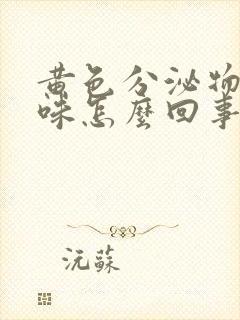 黄色分泌物
味怎麼回事
沅蘇